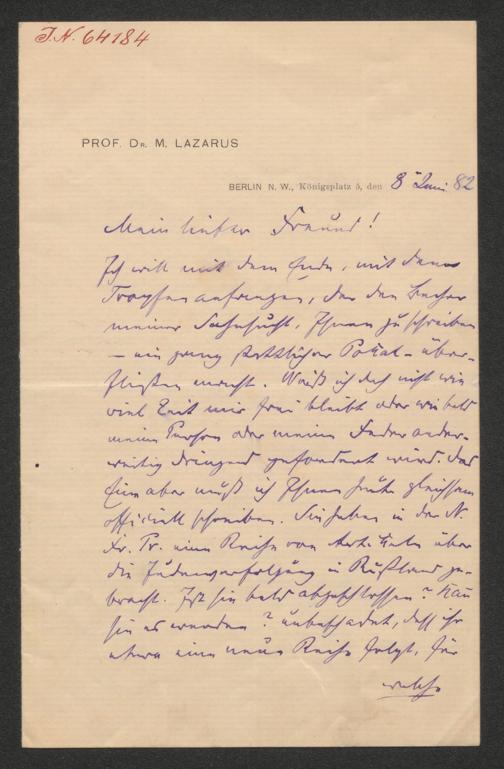 J.N. 64184
PROF. DR. M. LAZARUS
BERLIN N. W., Königsplatz 5, den 8 Juni 82
Mein lieber Freund!
Ich will mit dem Ende, mit dem
Tropfen anfangen, der den Becher
meiner Sehnsucht, Ihnen zu schreiben
– ein ganz stattlicher Pokal – über-
fließen macht. Weiß ich doch nicht wie
viel Zeit mir frei bleibt oder wie bald
meine Person oder meine Feder ander-
weitig dringend gefordert wird. Das
Eine aber muß ich Ihnen heute gleichsam
officiell schreiben. Sie haben in der N.
Fr. Pr. eine Reihe von Artikeln über
die Judenverfolgung in Rußland ge-
bracht. Ist sie bald abgeschlossen? Kann
sie es werden? unbeschadet, daß ihr
etwa eine neue Reihe folgt, für
welche